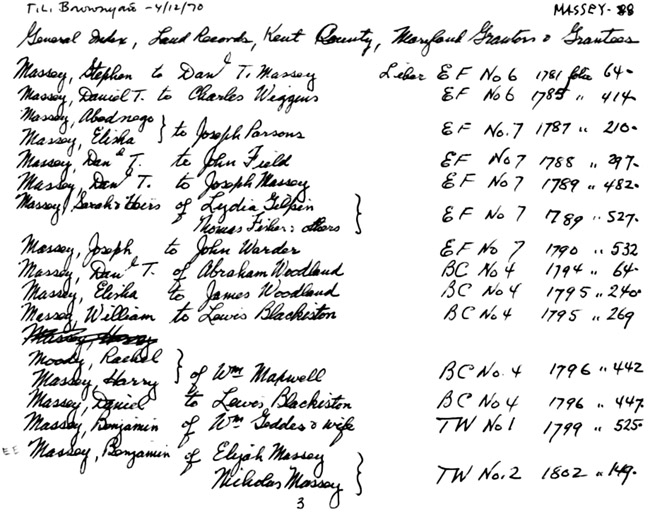 T.L. Brownyard - 4/12/70 MASSEY - 88
General Index, Land Records, Kent County, Maryland Grantors & Grantees
Massey, Stephen to Danl T. Massey Liber EF No 6 1781 folio 64
Massey, Daniel T. to Charles Wiggins EF No 6 1785 " 414
Massey, Abednego
Massey, Elisha } to Joseph Parsons EF No. 7 1787 " 210
Massey, Danl T. to John Field EF No 7 1788 " 297
Massey, Danl T. to Joseph Massey EF No 7 1789 " 482
Massey, Sarah & Heirs of Lydia Gilpin
Thomas Fisher & others } EF No 7 1789 " 527
Massey, Joseph to John Warder EF No 7 1790 " 532
Massey, Danl T. of Abraham Woodland BC No 4 1794 " 64
Massey, Elisha to James Woodland BC No 4 1795 " 240
Massey, William to Lewis Blackiston BC No 4 1795 " 269
Massey, Harry
Moody, Rachel
Massey, Harry } of Wm Maxwell BC No. 4 1796 " 442
Massey, Daniel to Lewis Blackiston BC No 4 1796 " 447
Massey, Benjamin of Wm Geddes & wife TW No 1 1799 " 525
EE Massey, Benjamin of Elijah Massey
Nicholas Massey } TW No. 2 1802 " 149
3